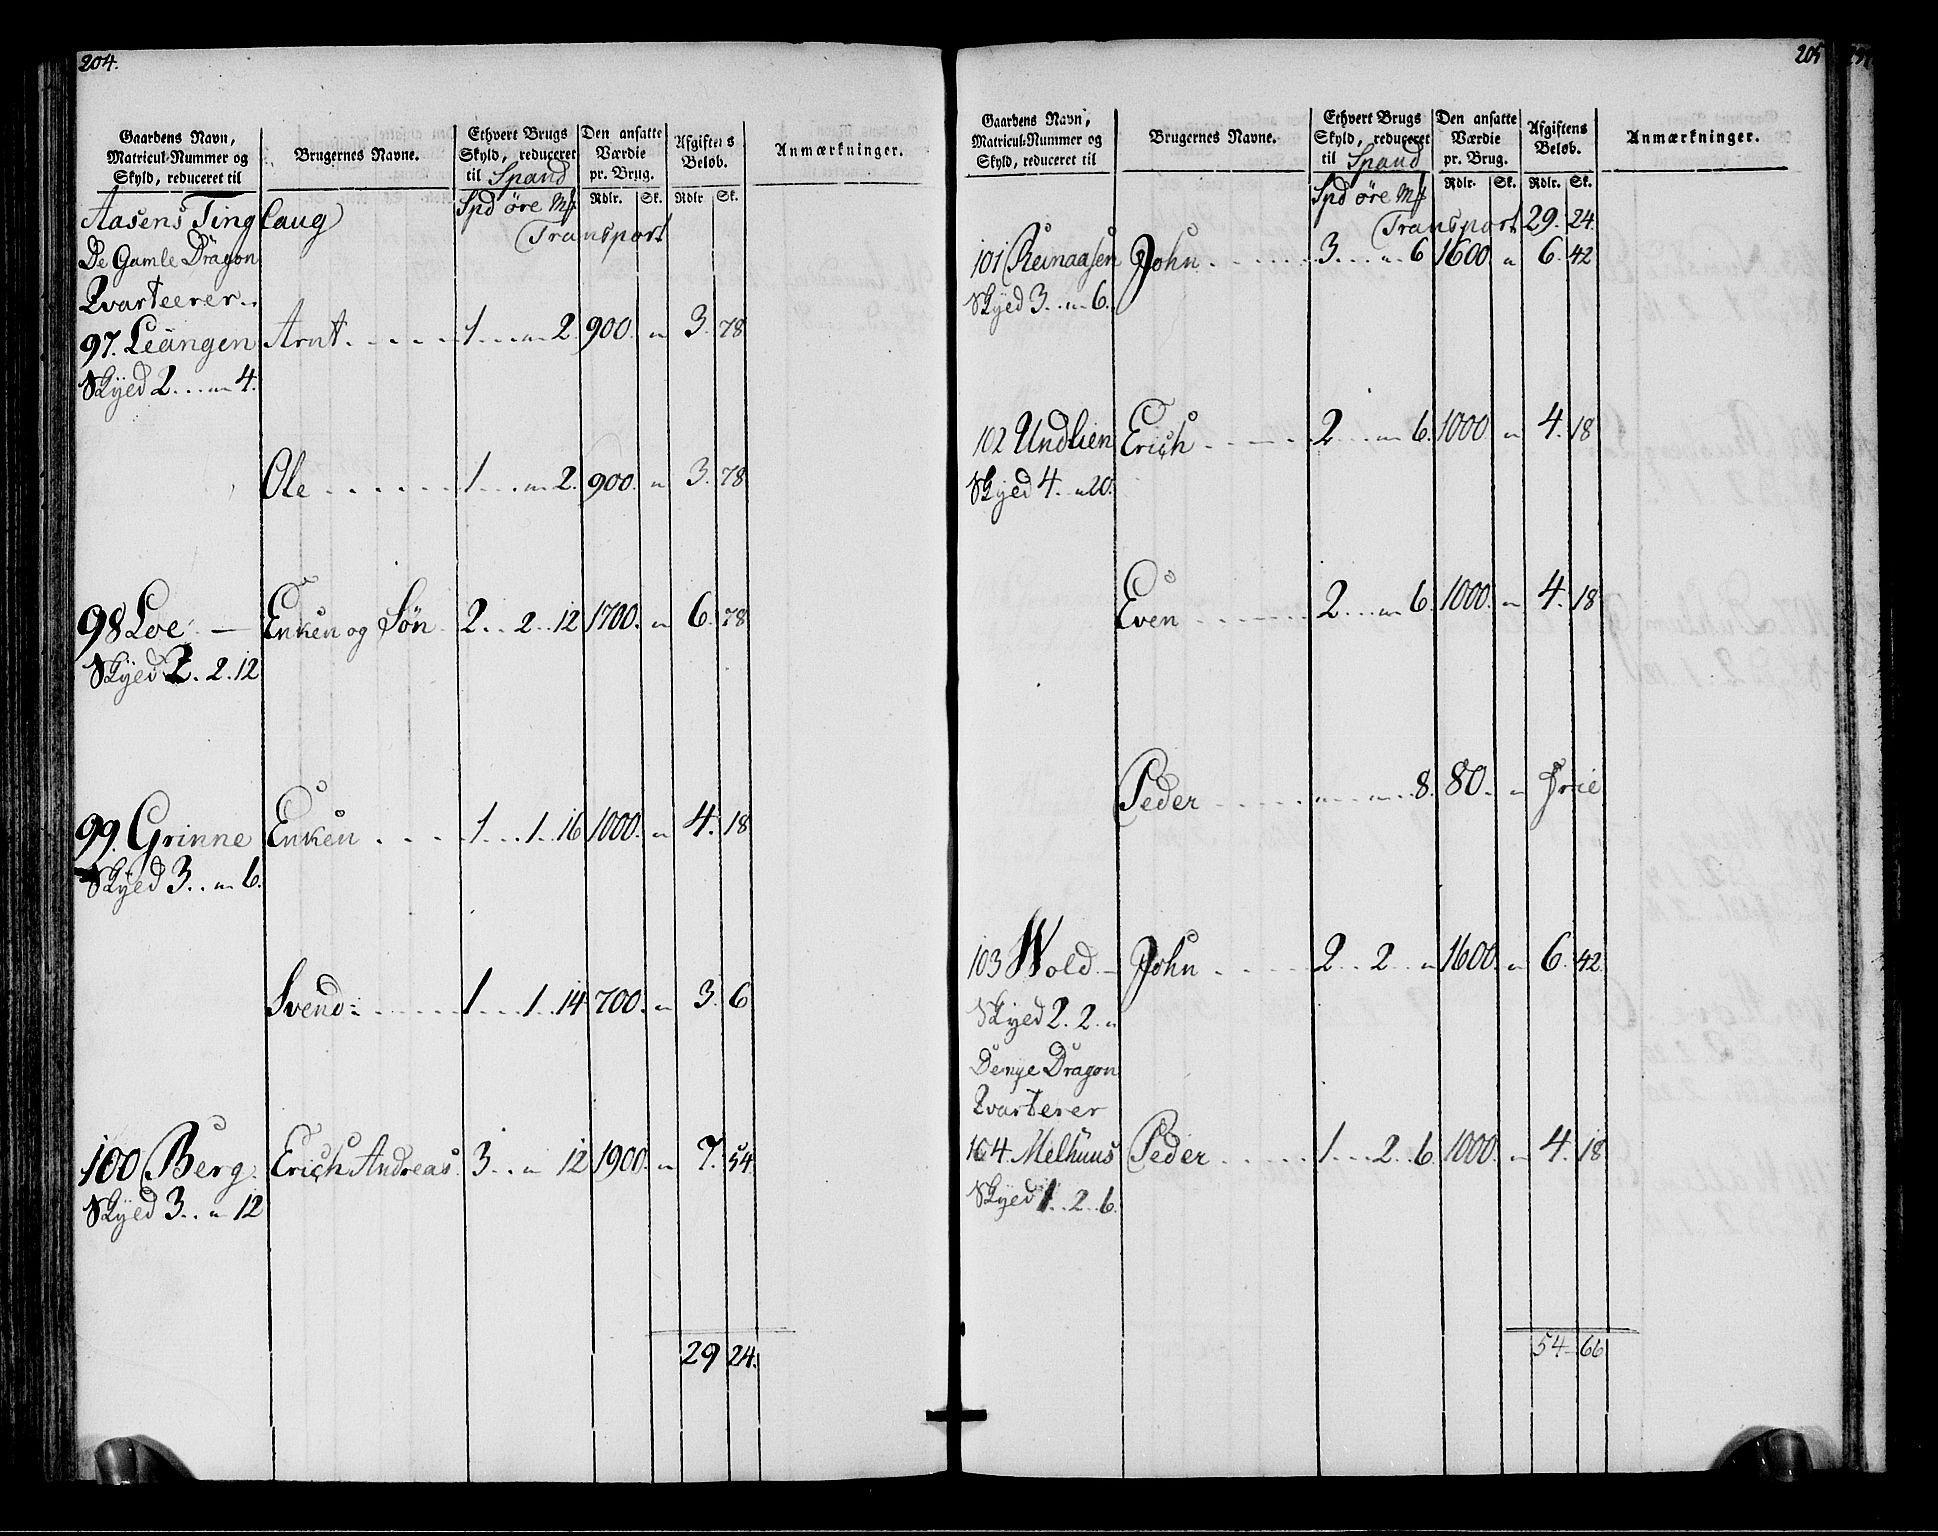 204.
Gaardens Navn, Matricul-Nummer og Skyld, reduceret til
Brugernes Navne.
Ethvert Brugs Skyld, reduceret til Spand
Den ansatte Værdie pr. Brug.
Afgiftens Beløb.
Anmærkninger.
Spd øre Mk Rdlr. Sk. Rdlr Sk.
Aasens Ting laug
Transport
De Gamle Dragon
Qvarteerer..
97. Leangen Arnt 1 " 2. 900. " 3. 78
Skyed 2 . . " 4.
Ole 1 " 2. 900. " 3. 78
98 Loe Enken og Søn 2 . . 2 . . 12 1700. " 6. 78
Skyed 2. 2. 12
99. Grinne Enken 1 . . 1 . . 16 1000. " 4. 18
Skyed 3 . . " 6.
Svend 1 . . 1 . . 14 700. " 3. 6
100 Berg. Erich Andreas. 3 . . " 12 1900. " 7. 54
Skyed 3 . . " 12
29 24.
205
Gaardens Navn, Matricul-Nummer og Skyld, reduceret til
Brugernes Navne.
Ethvert Brugs Skyld, reduceret til Spand
Den ansatte Værdie pr. Brug.
Afgiftens Beløb.
Anmærkninger.
Spd øre Mk Rdlr. Sk. Rdlr. Sk.
Transport 29. 24.
101 Reinaasen John 3 . . " 6 1600. " 6. 42
Skyed 3 . . " 6.
102 Undlien Erich 2 . . " 6. 1000. " 4. 18
Skyed 4. " 20.
Even 2 . . " 6. 1000. " 4. 18
Peder " " 8. 80. " Frie
103 Wold John 2 . . 2 . . " 1600. " 6. 42.
Skyed 2. 2. "
De nye Dragon
Qvarterer
104. Melhuus Peder 1 . . 2 . . 6. 1000. " 4. 18
Skyed 1 . . 2 . . 6.
54 66